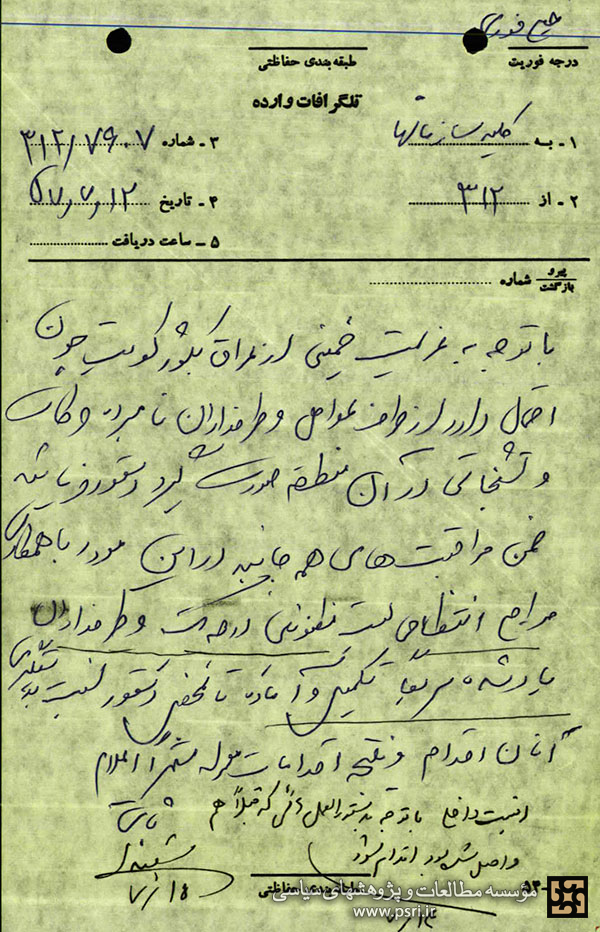 خیلی فوری
درجه فوریت
طبقه‌بندی حفاظتی
تلگرافات وارده
۱ - به کلیه سازمانها
۳ - شماره ۳۱۲/۷۹۰۷
۲ - از ۳۱۲
۴ - تاریخ ۵۷٫۷٫۱۲
۵ - ساعت دریافت
پیرو
بازگشت
شماره
با توجه به عزیمت خمینی از عراق بکشور کویت چون
احتمال دارد از طرف عوامل و طرفداران نامبرده
و تشنجاتی در آن منطقه صورت گیرد دستور فرمایید
ضمن مراقبت‌های همه جانبه در این مورد با همکاری
مراجع انتظامی لیست مظنونین درجه یک و طرفداران
یادشده سریعا تکمیل و آماده تا بمحض دستور نسبت به دستگیری
آنان اقدام و نتیجه اقدامات معموله مشروحاً اعلام
ثابتی
امنیت داخلی با توجه بدستورالعمل که قبلاً هم
واصل شده بود اقدام شود
۷/۱۵
طبقه‌بندی حفاظتی
۷/۱۳
۵۳-
مؤسسه مطالعات و پژوهشهای سیاسی
www.psri.ir